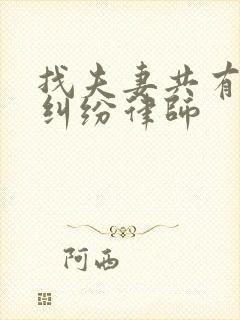 找夫妻共有
纠纷律师
阿西